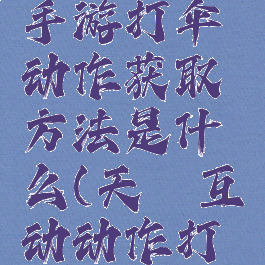 手游打伞
动作获取
方法是什
么(天 互
动动作打